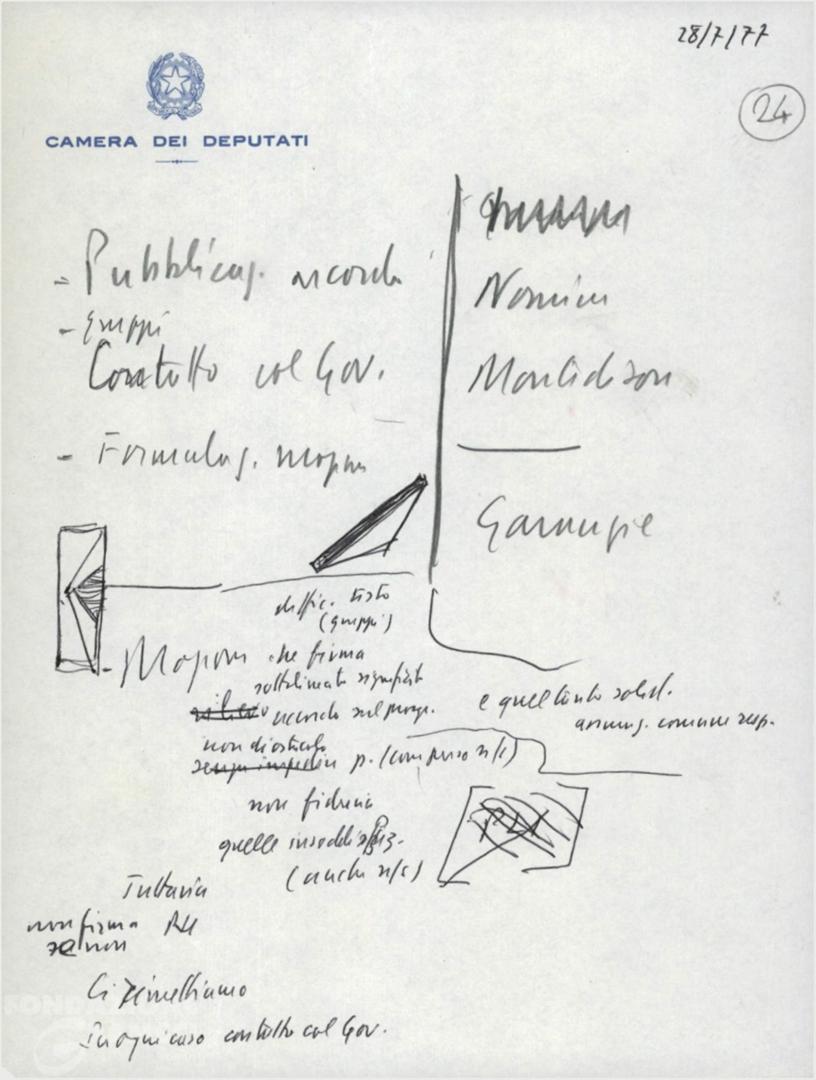 28/7/77
24
CAMERA DEI DEPUTATI
- Pubblicaz. accordo
- gruppi
Contatto col Gov.
- Formulaz. mozion
Nomine
Montedison
Garanzie
diffic. testo
(gruppi)
- Mozion che firma
sottolineato significato
accordo sul progr.
non di ostacolo
p. (compreso n/s)
non fiducia
quelle insoddisfaz.
(anche n/s)
e quell'unto solid.
assunz. comune resp.
PLI
Tuttavia
non firma PLI
se non
Ci rimettiamo
In ogni caso contatto col Gov.
FOND